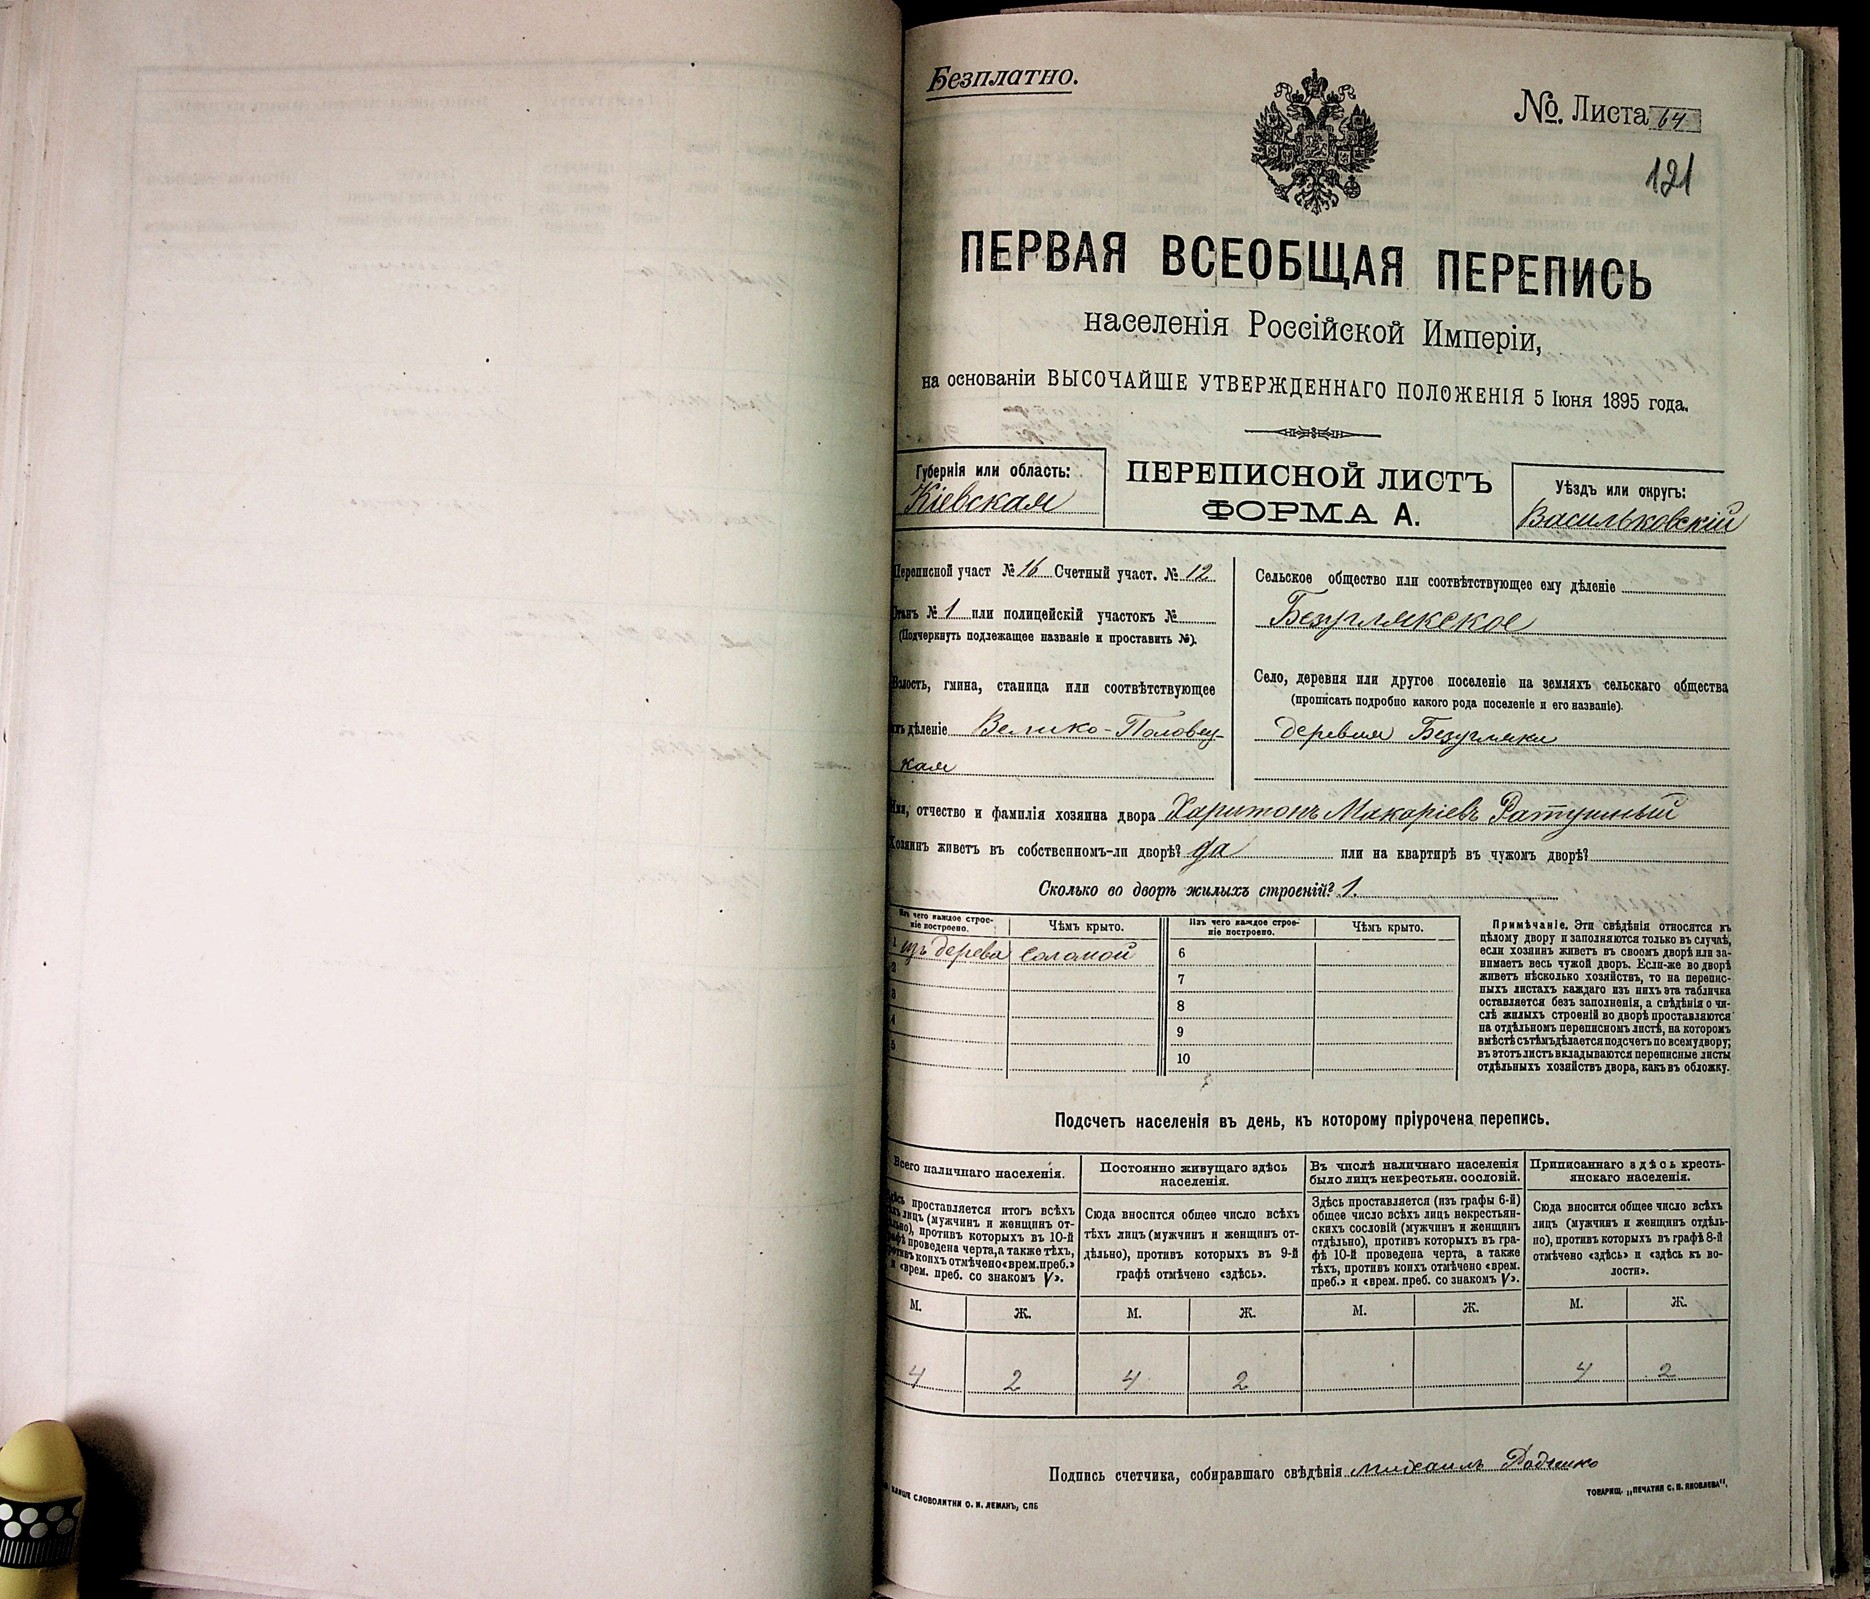 Безплатно.
№ Листа 64
121
ПЕРВАЯ ВСЕОБЩАЯ ПЕРЕПИСЬ
населенія Россійской Имперіи,
на основаніи ВЫСОЧАЙШЕ УТВЕРЖДЕННАГО ПОЛОЖЕНІЯ 5 Іюня 1895 года.
Губернія или область:
Кіевская
ПЕРЕПИСНОЙ ЛИСТЪ
ФОРМА А.
Уѣздъ или округъ:
Васильковскій
Переписной участ № 16 Счетный участ. № 12
Станъ № 1 или полицейскій участокъ №
(Подчеркнуть подлежащее названіе и проставить №).
Волость, гмина, станица или соотвѣтствующее
имъ дѣленіе Велико-Половец-
кая
Сельское общество или соотвѣтствующее ему дѣленіе
Безуглякское
Село, деревня или другое поселеніе на земляхъ сельскаго общества
(прописать подробно какого рода поселеніе и его названіе).
деревня Безугляки
Имя, отчество и фамилія хозяина двора Харитонъ Макаріевъ Ратушный
Хозяинъ живетъ въ собственномъ-ли дворѣ? да или на квартирѣ въ чужомъ дворѣ?
Сколько во дворѣ жилыхъ строеній? 1.
Изъ чего каждое строе-
ніе построено.
Чѣмъ крыто.
Изъ чего каждое строе-
ніе построено.
Чѣмъ крыто.
1 изъ дерева соломой 6
2 7
3 8
4 9
5 10
Примѣчаніе. Эти свѣдѣнія относятся къ
цѣлому двору и заполняются только въ случаѣ,
если хозяинъ живетъ въ своемъ дворѣ или за-
нимаетъ весь чужой дворъ. Если-же во дворѣ
живетъ нѣсколько хозяйствъ, то на перепис-
ныхъ листахъ каждаго изъ нихъ эта табличка
оставляется безъ заполненія, а свѣдѣнія о чи-
слѣ жилыхъ строеній во дворѣ проставляются
на отдѣльномъ переписномъ листѣ, на которомъ
вмѣстѣ съ тѣмъ дѣлается подсчетъ по всему двору;
въ этотъ листъ вкладываются переписные листы
отдѣльныхъ хозяйствъ двора, какъ въ обложку.
Подсчетъ населенія въ день, къ которому пріурочена перепись.
Всего наличнаго населенія.
Здѣсь проставляется итогъ всѣхъ
тѣхъ лицъ (мужчинъ и женщинъ от-
дѣльно), противъ которыхъ въ 10-й
графѣ проведена черта, а также тѣхъ,
противъ коихъ отмѣчено «врем. преб.»
и «врем. преб. со знакомъ V».
Постоянно живущаго здѣсь
населенія.
Сюда вносится общее число всѣхъ
тѣхъ лицъ (мужчинъ и женщинъ от-
дѣльно), противъ которыхъ въ 9-й
графѣ отмѣчено «здѣсь».
Въ числѣ наличнаго населенія
было лицъ некрестьян. сословій.
Здѣсь проставляется (изъ графы 6-й)
общее число всѣхъ лицъ некрестьян-
скихъ сословій (мужчинъ и женщинъ
отдѣльно), противъ которыхъ въ гра-
фѣ 10-й проведена черта, а также
тѣхъ, противъ коихъ отмѣчено «врем.
преб.» и «врем. преб. со знакомъ V».
Приписаннаго здѣсь кресть-
янскаго населенія.
Сюда вносится общее число всѣхъ
лицъ (мужчинъ и женщинъ отдѣль-
но), противъ которыхъ въ графѣ 8-й
отмѣчено «здѣсь» и «здѣсь къ во-
лости».
М. Ж. М. Ж. М. Ж. М. Ж.
4 2 4 2 4 2
Подпись счетчика, собиравшаго свѣдѣнія Михаилъ Радченко
КЛИШЕ СЛОВОЛИТНИ О. И. ЛЕМАНЪ, СПБ
ТОВАРИЩ. „ПЕЧАТНЯ С. П. ЯКОВЛЕВА".